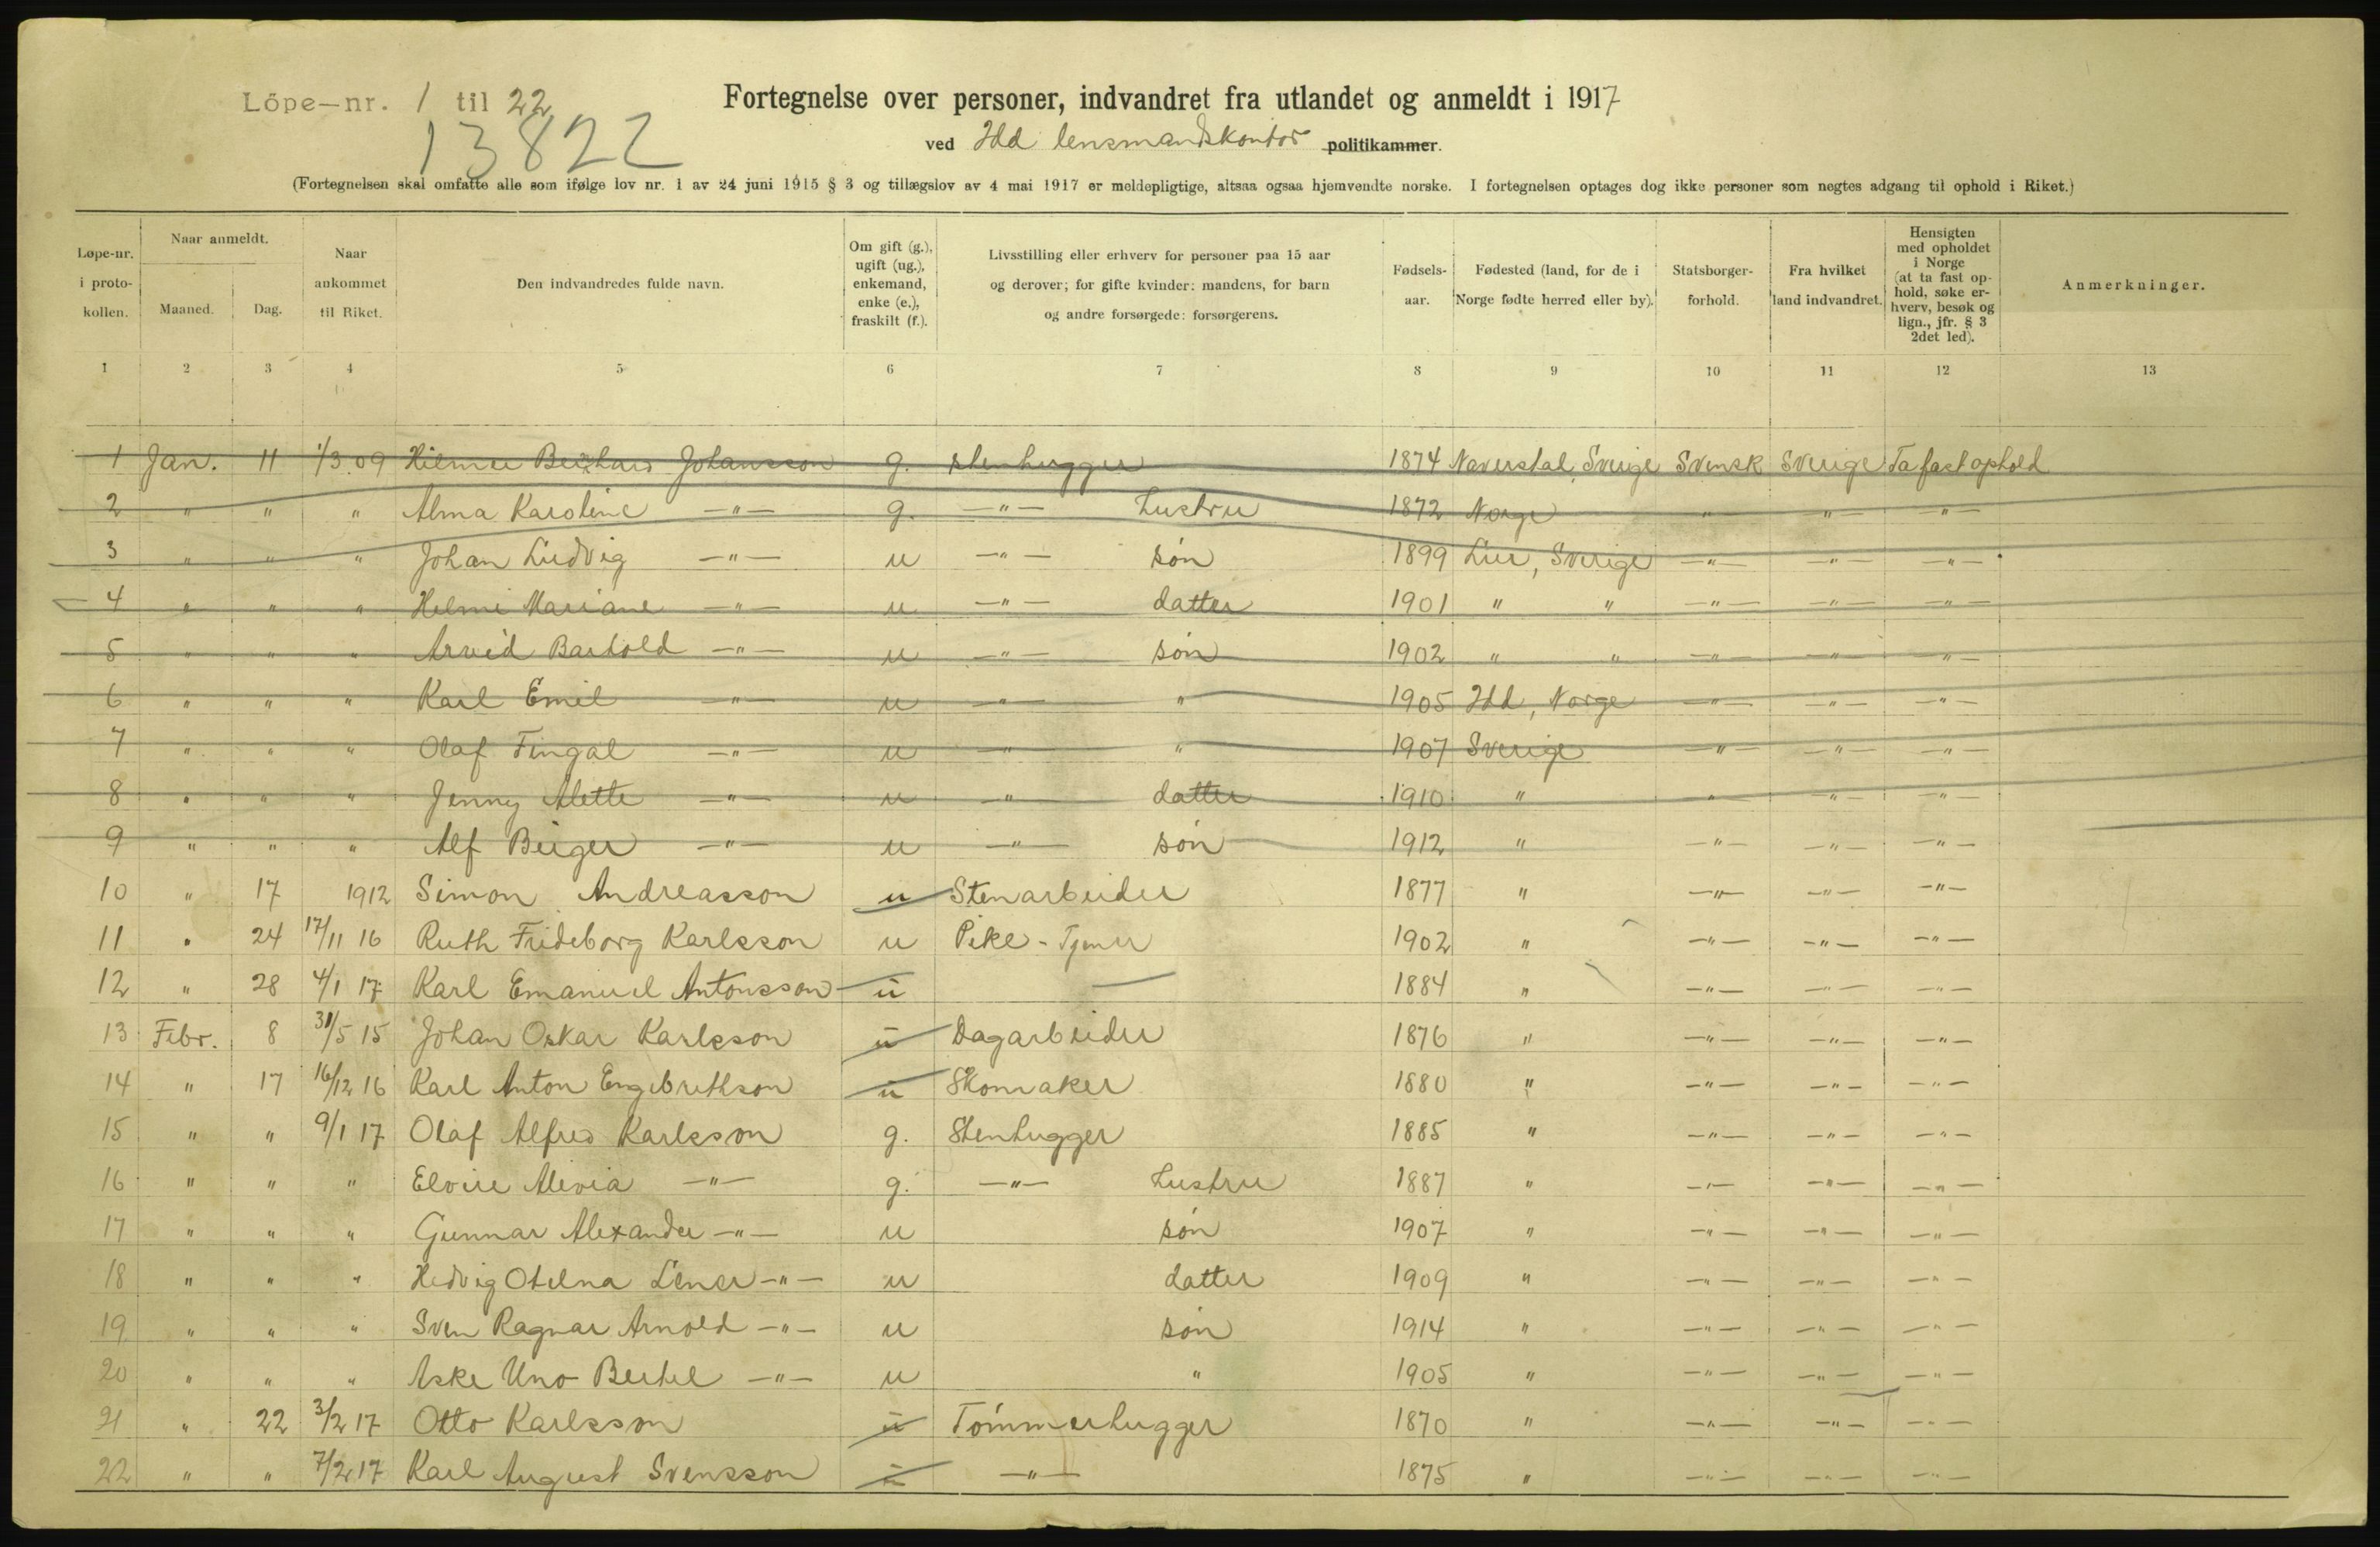 Löpe-nr. 1 til 22
13822
Fortegnelse over personer, indvandret fra utlandet og anmeldt i 1917
ved Idd lensmandskontor politikammer.
(Fortegnelsen skal omfatte alle som ifølge lov nr. 1 av 24 juni 1915 § 3 og tillægslov av 4 mai 1917 er meldepligtige, altsaa ogsaa hjemvendte norske. I fortegnelsen optages dog ikke personer som negtes adgang til ophold i Riket.)
Løpe-nr. i proto-kollen. Naar anmeldt. Maaned. Dag. Naar ankommet til Riket. Den indvandredes fulde navn. Om gift (g.), ugift (ug.), enkemand, enke (e.), fraskilt (f.). Livsstilling eller erhverv for personer paa 15 aar og derover; for gifte kvinder: mandens, for barn og andre forsørgede: forsørgerens. Fødsels-aar. Fødested (land, for de i Norge fødte herred eller by). Statsborger-forhold. Fra hvilket land indvandret. Hensigten med opholdet i Norge (at ta fast op-hold, søke er-hverv, besøk og lign., jfr. § 3 2det led). Anmerkninger.
1 2 3 4 5 6 7 8 9 10 11 12 13
1 Jan. 11 1/3 09 Hilmer Bernhard Johansson g. stenhugger 1874 Naverstal, Sverige Svensk Sverige Ta fast ophold
2 " " " Alma Karoline -"- g. -"- Hustru 1872 Norge " -"- -"-
3 " " " Johan Ludvig -"- u -"- søn 1899 Lur, Sverige -"- -"- -"-
4 " " " Helmi Mariane -"- u -"- datter 1901 " " -"- -"- -"-
5 " " " Arvid Barhold -"- u -"- søn 1902 " " -"- -"- -"-
6 " " " Karl Emil -"- u -"- " 1905 Idd, Norge -"- -"- -"-
7 " " " Olaf Fingal -"- u -"- " 1907 Sverige -"- -"- -"-
8 " " " Jenny Alette -"- u -"- datter 1910 " " -"- -"-
9 " " " Alf Birger -"- u -"- søn 1912 " -"- -"- -"-
10 " 17 1912 Simon Andreasson u Stenarbeider 1877 " -"- -"- -"-
11 " 24 17/11 16 Ruth Frideborg Karlsson u Pike - Tjener 1902 " -"- -"- -"-
12 " 28 4/1 17 Karl Emanuel Antonsson u — 1884 " -"- -"- -"-
13 Febr. 8 31/5 15 Johan Oskar Karlsson u Dagarbeider 1876 " -"- -"- -"-
14 " 17 16/12 16 Karl Anton Engebrethson u Skomaker 1880 " -"- -"- -"-
15 " " 9/1 17 Olaf Alfred Karlsson g. Stenhugger 1885 " -"- -"- -"-
16 " " " Elvire Alivia -"- g. -"- Hustru 1887 " -"- -"- -"-
17 " " " Gunnar Alexander -"- u søn 1907 " -"- -"- -"-
18 " " " Hedvig Otelna -"- u datter 1909 " -"- -"- -"-
19 " " " Sven Ragnar Arnold -"- u søn 1914 " -"- -"- -"-
20 " " " Aske Uno Bertel -"- u " 1905 " -"- -"- -"-
21 " 22 3/2 17 Otto Karlsson u Tömmerhugger 1870 " -"- -"- -"-
22 " " 7/2 17 Karl August Svensson u -"- 1875 " -"- -"- -"-